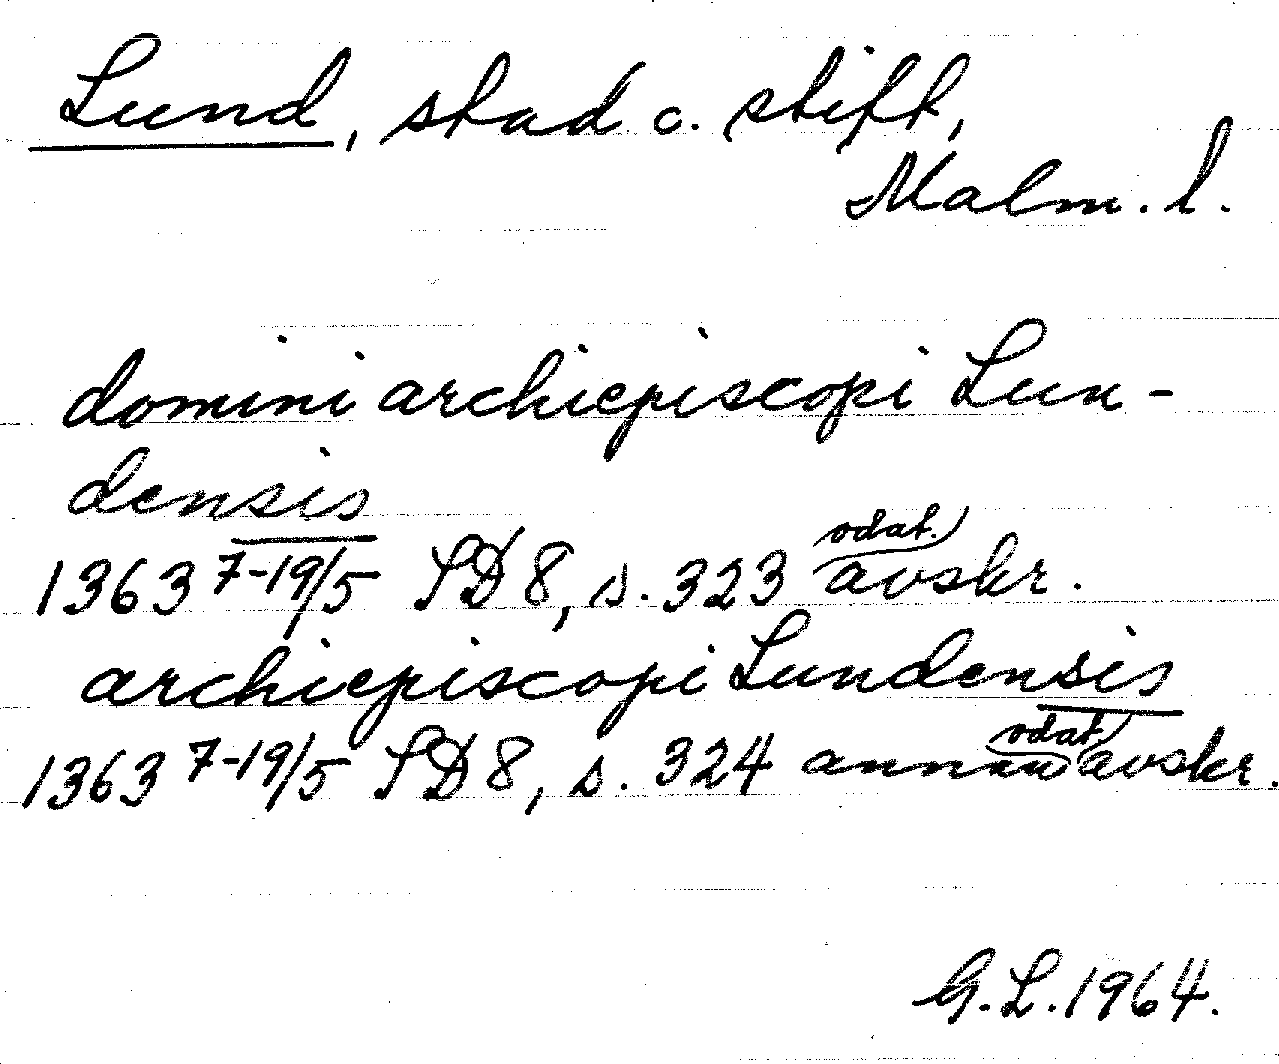 Lund, stad o. stift,
Malm. l.
domini archiepiscopi Lun-
densis
1363 7-19/5 SD 8, s. 323 odat. avskr.
archiepiscopi Lundensis
1363 7-19/5 SD 8, s. 324 annan odat. avskr.
G. L. 1964.